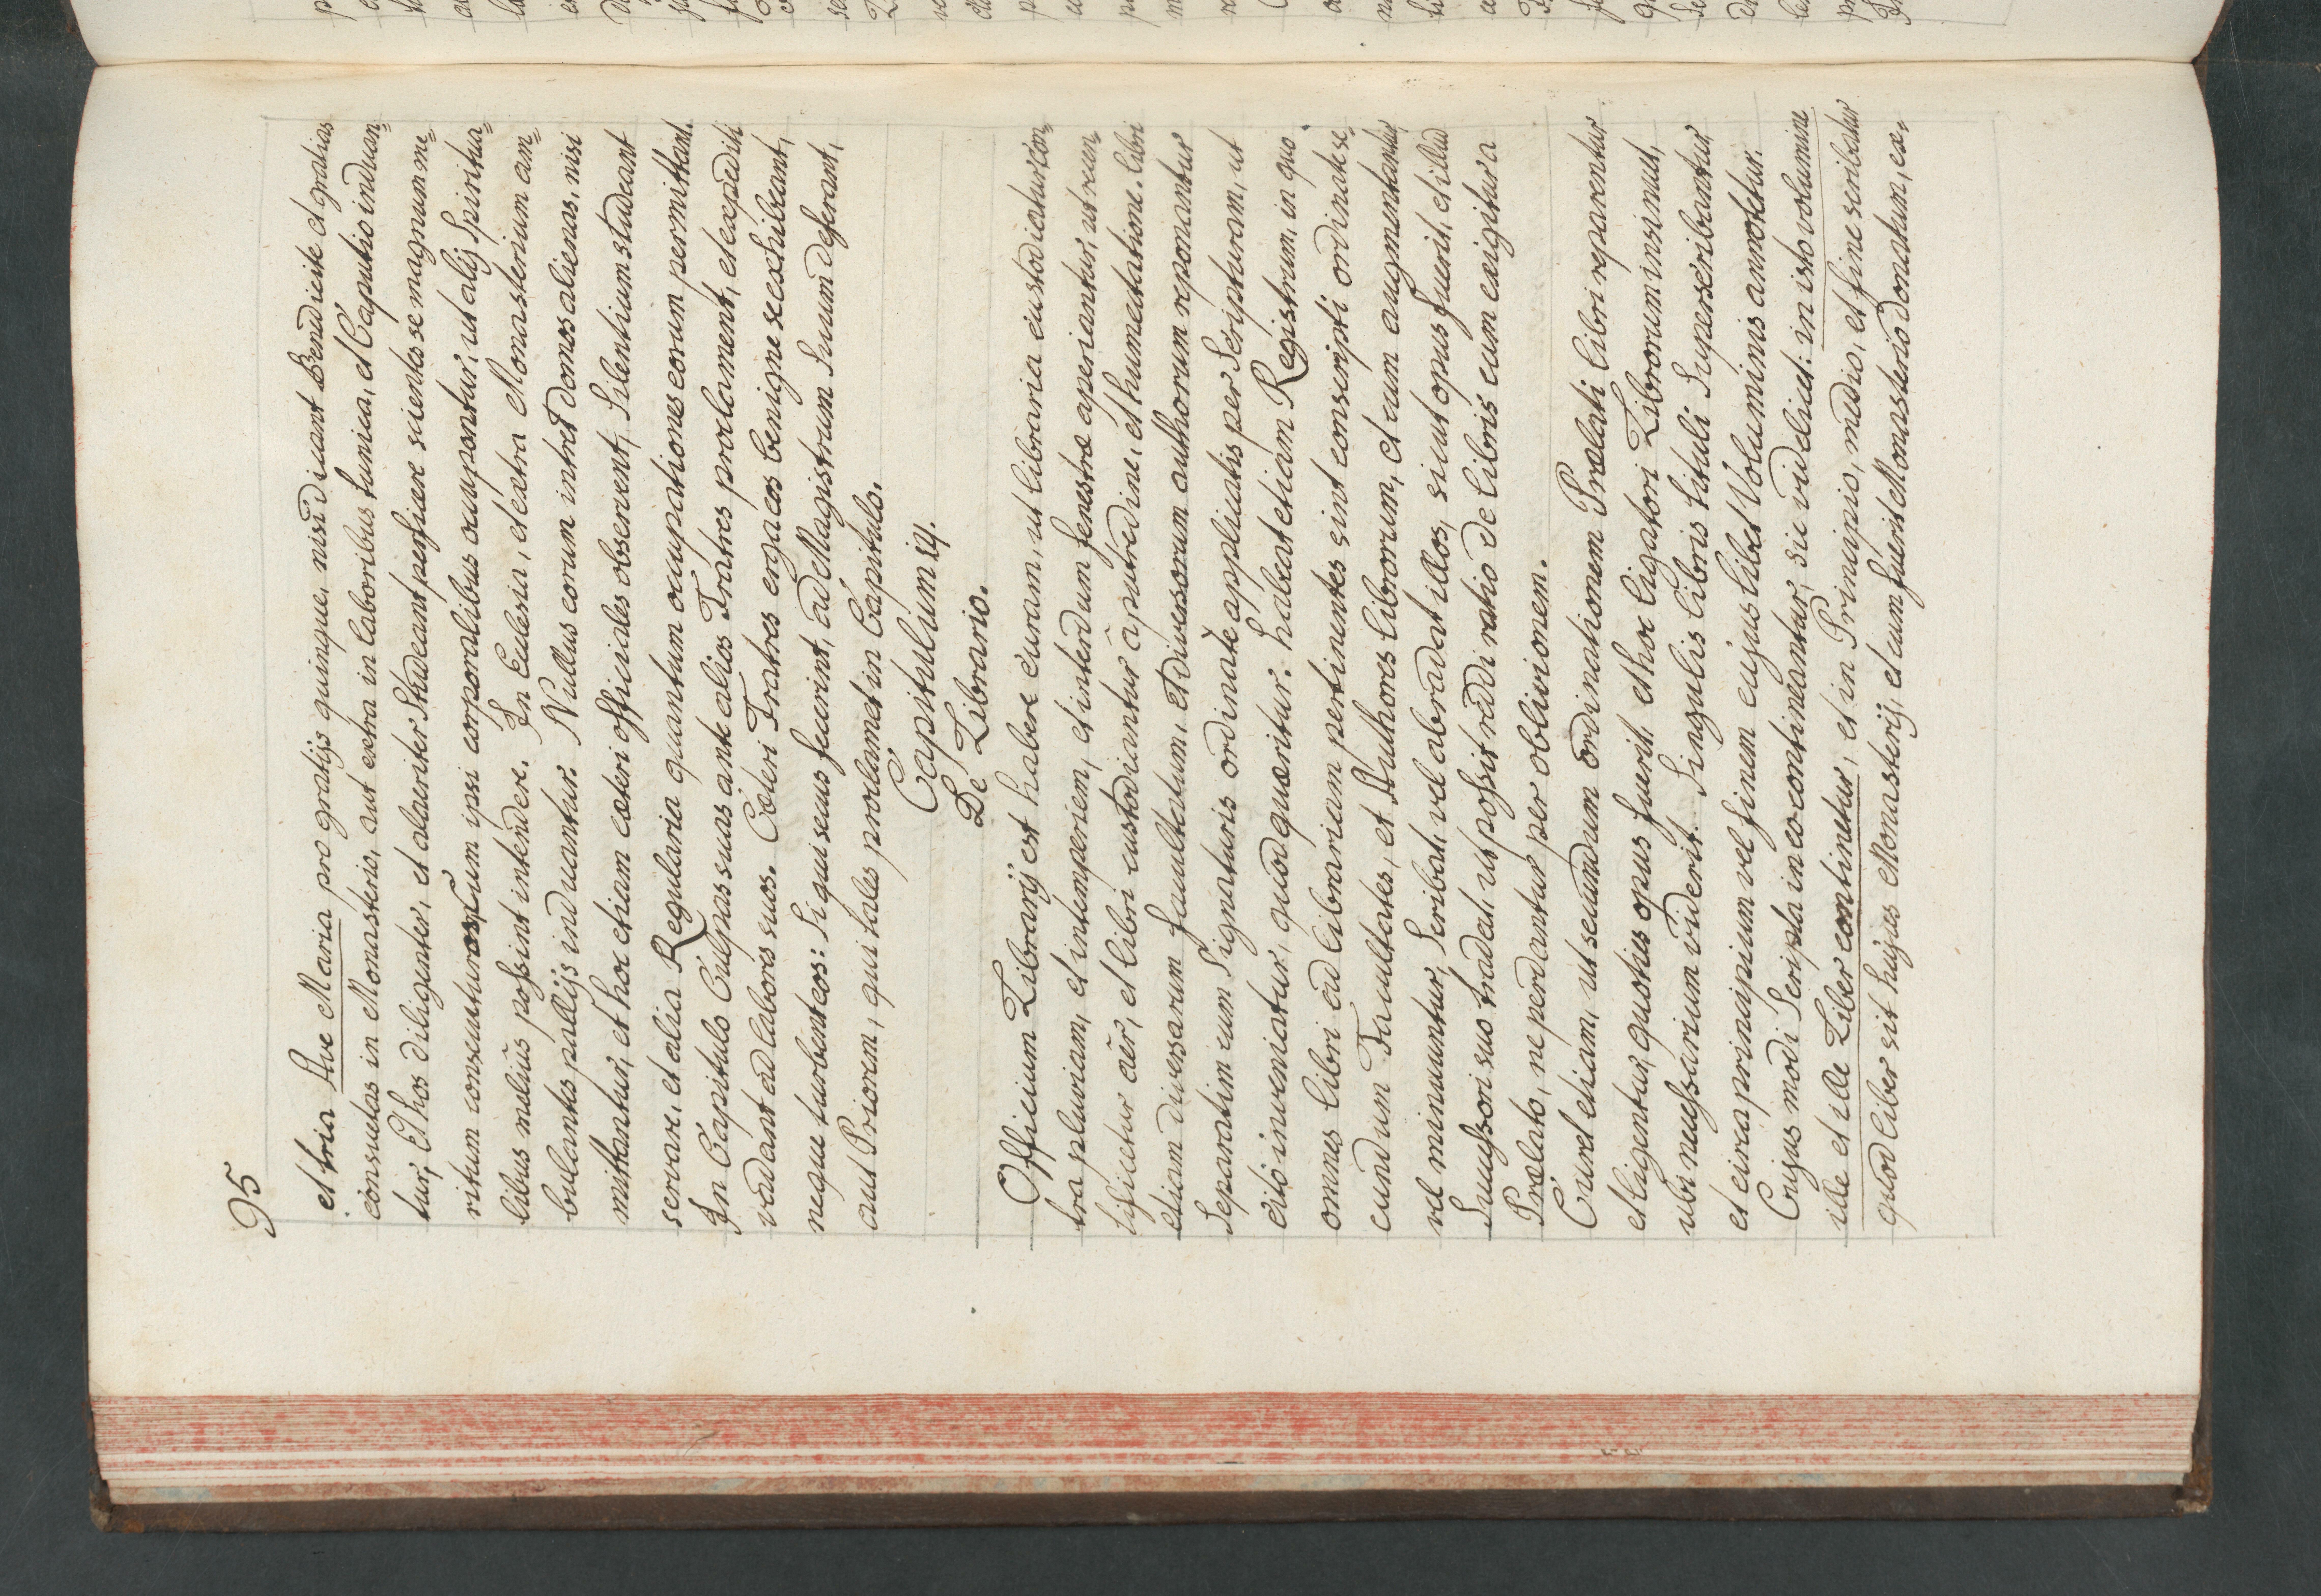 95
et tria Ave Maria pro gratijs quinque, nisi dicant Benedicite et gratias
consuetas in Monasterio, aut extra in laboribus tunica, et Caputio induan=
tur, Et hos diligenter, et alacriter Studeant perficere scientes se magnum me=
ritum consecuturos, Cum ipsi corporalibus occupantur, ut alij Spiritua=
libus melius possint intendere. In Ecclesia, et extra Monasterium am=
bulantes pallijs induantur. Nullus eorum intret domos alienas, nisi
mittantur, et hoc etiam cæteri officiales observent, Silentium studeant
servare, et alia Regularia quantum occupationes eorum permittant.
In Capitulo Culpas suas ante alios Fratres proclament, et expediti
vadant ad labores suos. Cæteri Fratres erga eos benigne se exhibeant,
neque turbent eos: Si qui secus fecerint, ad Magistrum Suum deferant,
aut Priorem, qui tales proclamet in Capitulo.
Capitulum 14.
De Librario.
Officium Librarij est habere curam, ut libraria custodiatur con=
tra pluviam, et intemperiem, et interdum fenestræ aperiantur, ut recen=
tificetur aër, et libri custodiantur à putredine, et humectatione. libri
etiam diversarum facultatum, et diversorum authorum reponantur
Separatim cum Signaturis ordinatè applicatis per Scripturam, ut
citò inveniatur, quod quæritur. habeat etiam Registrum, in quo
omnes libri ad librariam pertinentes sint conscripti ordinate se=
cundum Facultates, et Authores librorum, et cum augmentantur,
vel minuuntur, Scribat, vel abradat illos, sicut opus fuerit, et illud
Successori suo tradat, ut possit reddi ratio de libris cum exigitur a
Prælato, ne perdantur per oblivionem.
Curet etiam, ut secundum ordinationem Prælati libri reparentur
et ligentur, quoties opus fuerit. et hoc ligatori Librorum insinuet,
ubi necessarium viderit. Singulis libris tituli Superscribantur,
et circa principium vel finem cujus libet Voluminis annotetur.
Cujus modi Scripta in eo contineantur, sic videlicet: in isto volumine
ille et ille Liber continetur, et in Principio, medio, et fine scribatur
quod liber sit hujus Monasterij, et cum fuerit Monasterio donatum, ex,